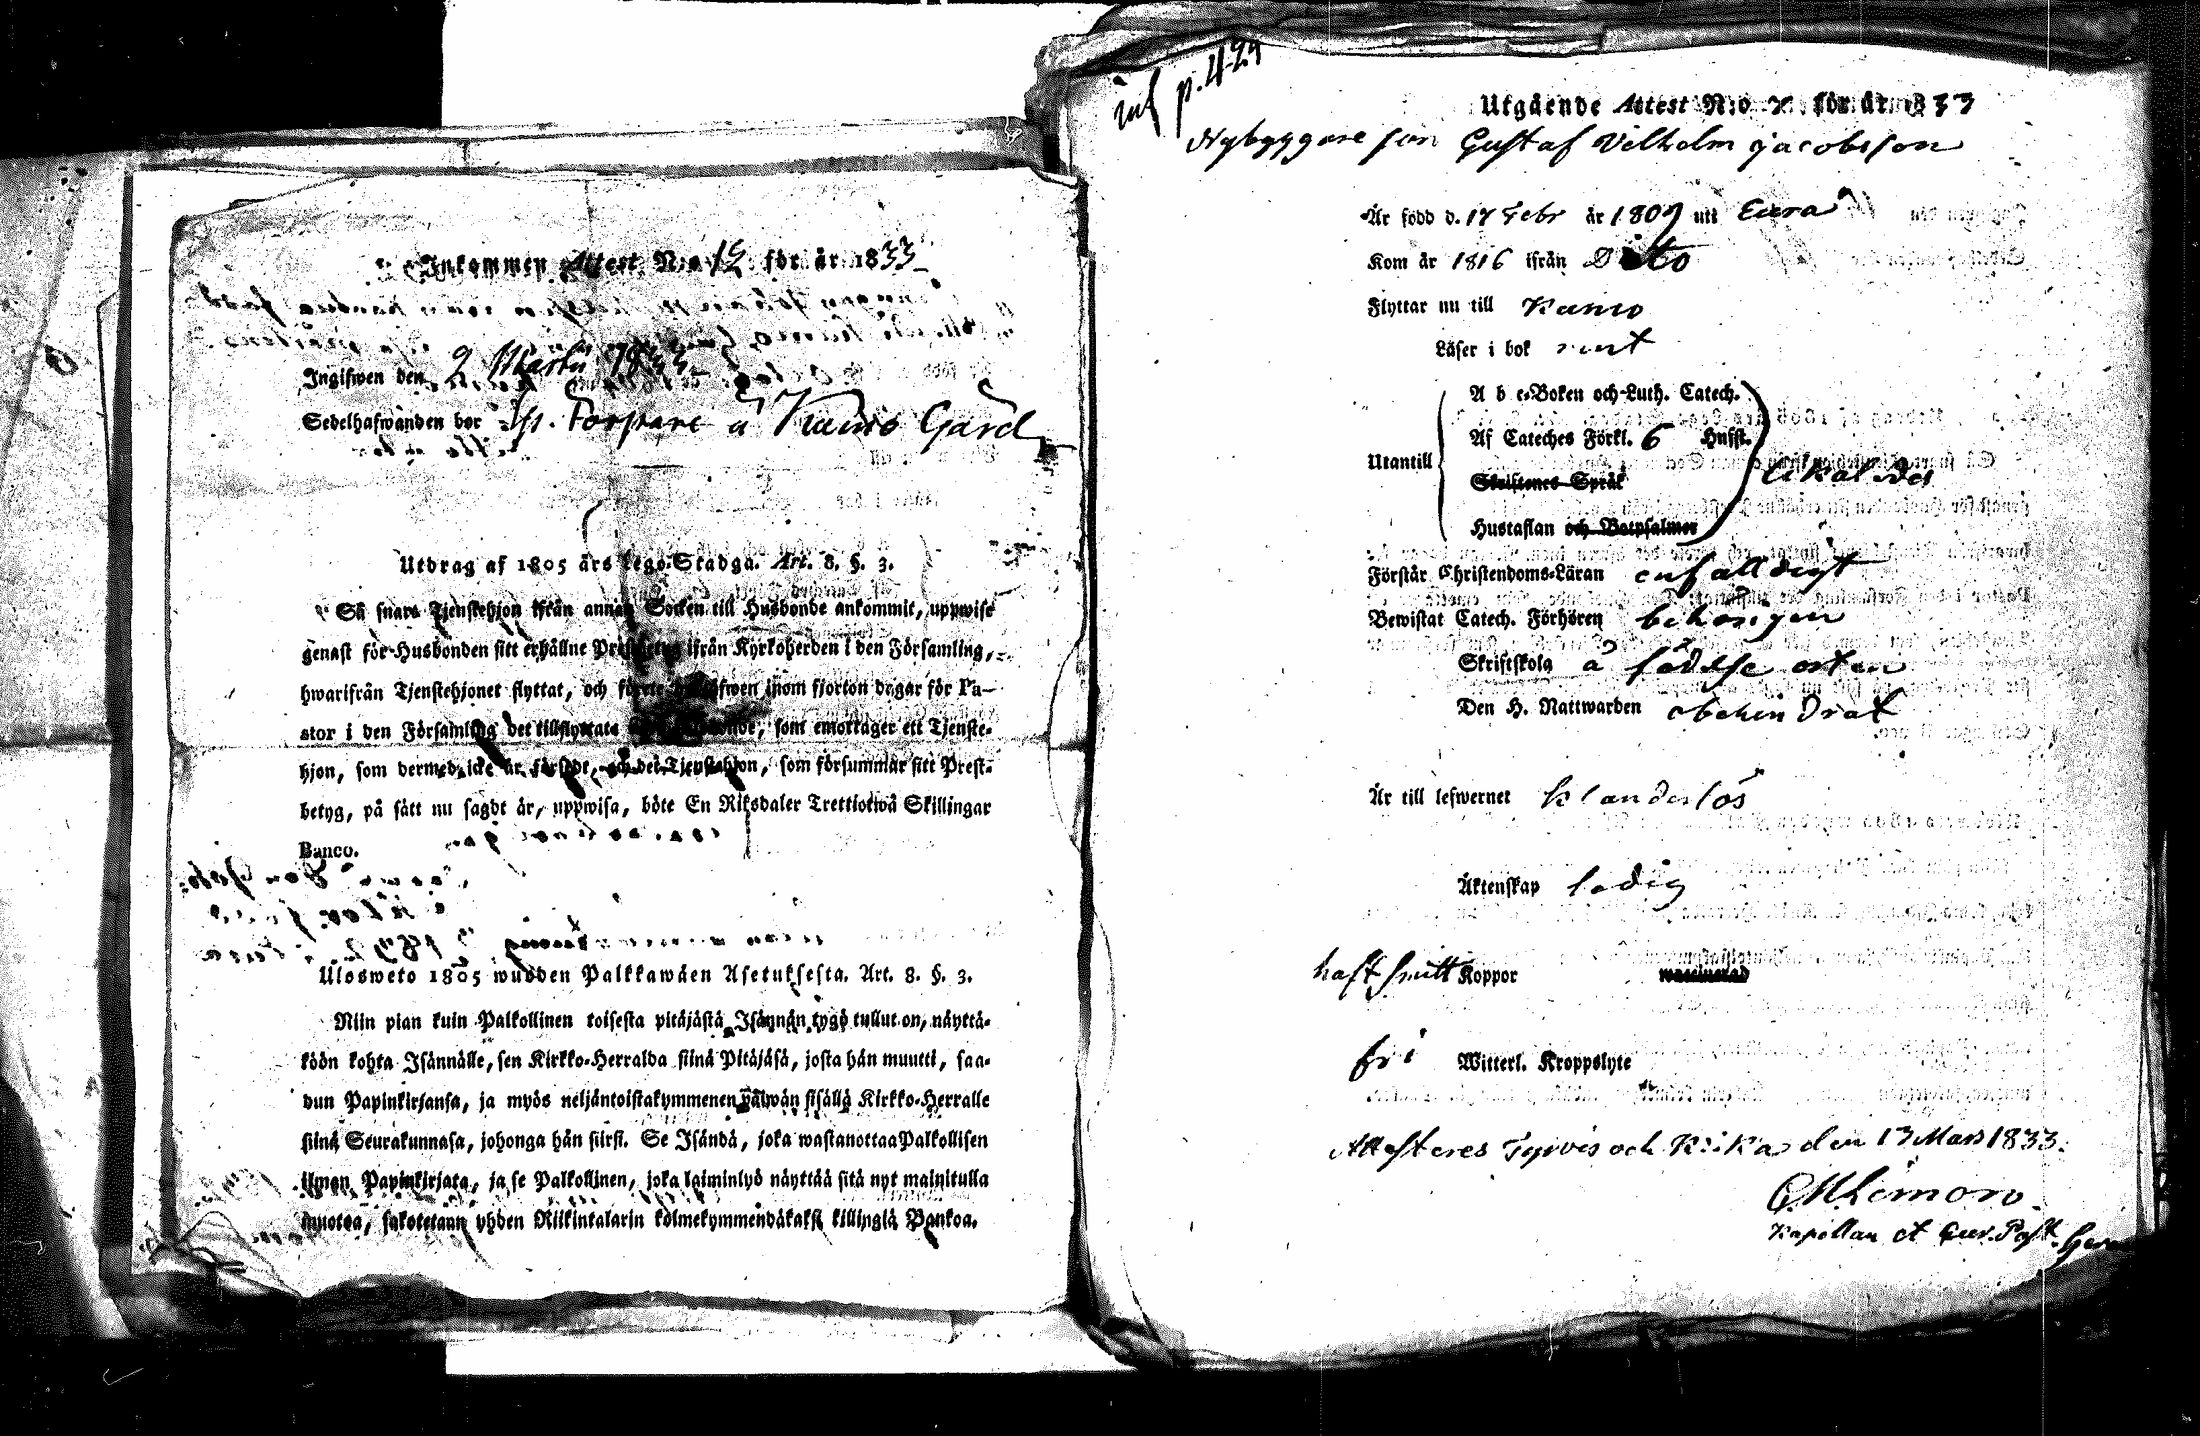 Inkommen Attest N:o 12 för år 1833
Ingifwen den 9 Martii 1833
Sedelhafwanden bor Torpare å Kumo Gård
Utdrag af 1805 års Lego-Stadga. Art. 8. §. 3.
Så snart Tjenstehjon ifrån annan Socken till Husbonde ankommit, uppwise
genast för Husbonden sitt erhållne Prestbetyg ifrån Kyrkoherden i den Församling,
hwarifrån Tjenstehjonet flyttat, och inom fjorton dagar för Pa-
stor i den Församling det tillflyttat som emottager ett Tjenste-
hjon, som dermed icke är försedt, och det Tjenstehjon, som försummar sitt Prest-
betyg, på sätt nu sagdt är, uppwisa, böte En Riksdaler Trettiotwå Skillingar
Banco.
Ulosweto 1805 wuoden Palkkawäen Asetuksesta. Art. 8. §. 3.
Niin pian kuin Palkollinen toisesta pitäjästä Isännän tygö tullut on, näyttä-
köön kohta Isännälle, sen Kirkko-Herralda siinä Pitäjäsä, josta hän muutti, saa-
dun Papinkirjansa, ja myös neljäntoistakymmenen päiwän sisällä Kirkko-Herralle
siinä Seurakunnasa, johonga hän siirsi. Se Isändä, joka wastanottaa Palkollisen
ilman Papinkirjata, ja se Palkollinen, joka laiminlyö näyttää sitä nyt mainitulla
muotoa, sakotetaan yhden Riikintalarin kolmekymmendäkaksi killingiä Bankoa.
inf p. 429
Utgående Attest N:o för år 1833
Nybyggare son Gustaf Vilhelm Jacobsson
Är född d. 17 Febr år 1809 uti Eura
Kom år 1816 ifrån Dito
Flyttar nu till Kumo
Läser i bok rent
A b c-Boken och Luth. Catech.
Af Cateches Förkl. 6 Hufst.
Utantill
Skriftenes Språk
Hustaflan och Botpsalmer
Förstår Christendoms-Läran enfalldigt
Bewistat Catech. Förhören behörigen
Skriftskola å födelse orten
Den H. Nattwarden obehindrat
Är till lefwernet klanderlös
Äktenskap ledig
haft smitt Koppor waccinerad
fri Witterl. Kroppslyte
Attesteres Tyrvis och Kiika den 13 Mars 1833.
Kapellan et